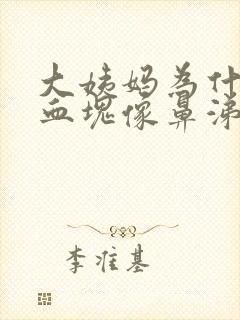 大姨妈为什
血塊像鼻涕
李准基